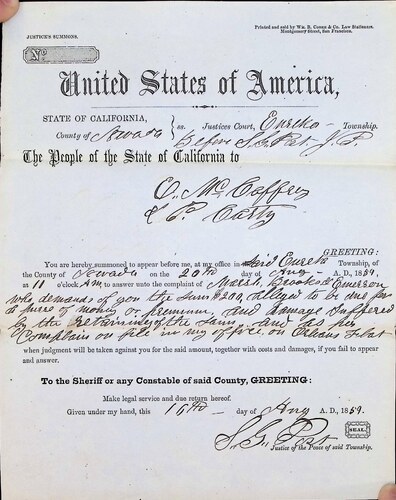 JUSTICE'S SUMMONS.
Printed and sold by Wm. B. Cooke & Co. Law Stationers.
Montgomery Street, San Francisco.
No.
United States of America,
STATE OF CALIFORNIA, ss. Justices Court, Eureka Township.
County of Nevada Before S. G. Pat J. P.
The People of the State of California to
C. McCaffrey
& P. Catty
GREETING:
You are hereby summoned to appear before me, at my office in said Eureka Township, of
the County of Nevada on the 20th day of Aug A. D., 1859.
at 11 o'clock AM to answer unto the complaint of Marsh, Brooks & Emerson
who demands of you the sum $200, alleged to be due for
a of money or premium, and damage suffered
by the of the same and as per
Complaint on file in my office on Orleans Flat
when judgment will be taken against you for the said amount, together with costs and damages, if you fail to appear
and answer.
To the Sheriff or any Constable of said County, GREETING:
Make legal service and due return hereof.
Given under my hand, this 16th day of Aug A. D., 1859.
S. G. Pat SEAL.
Justice of the Peace of said Township.